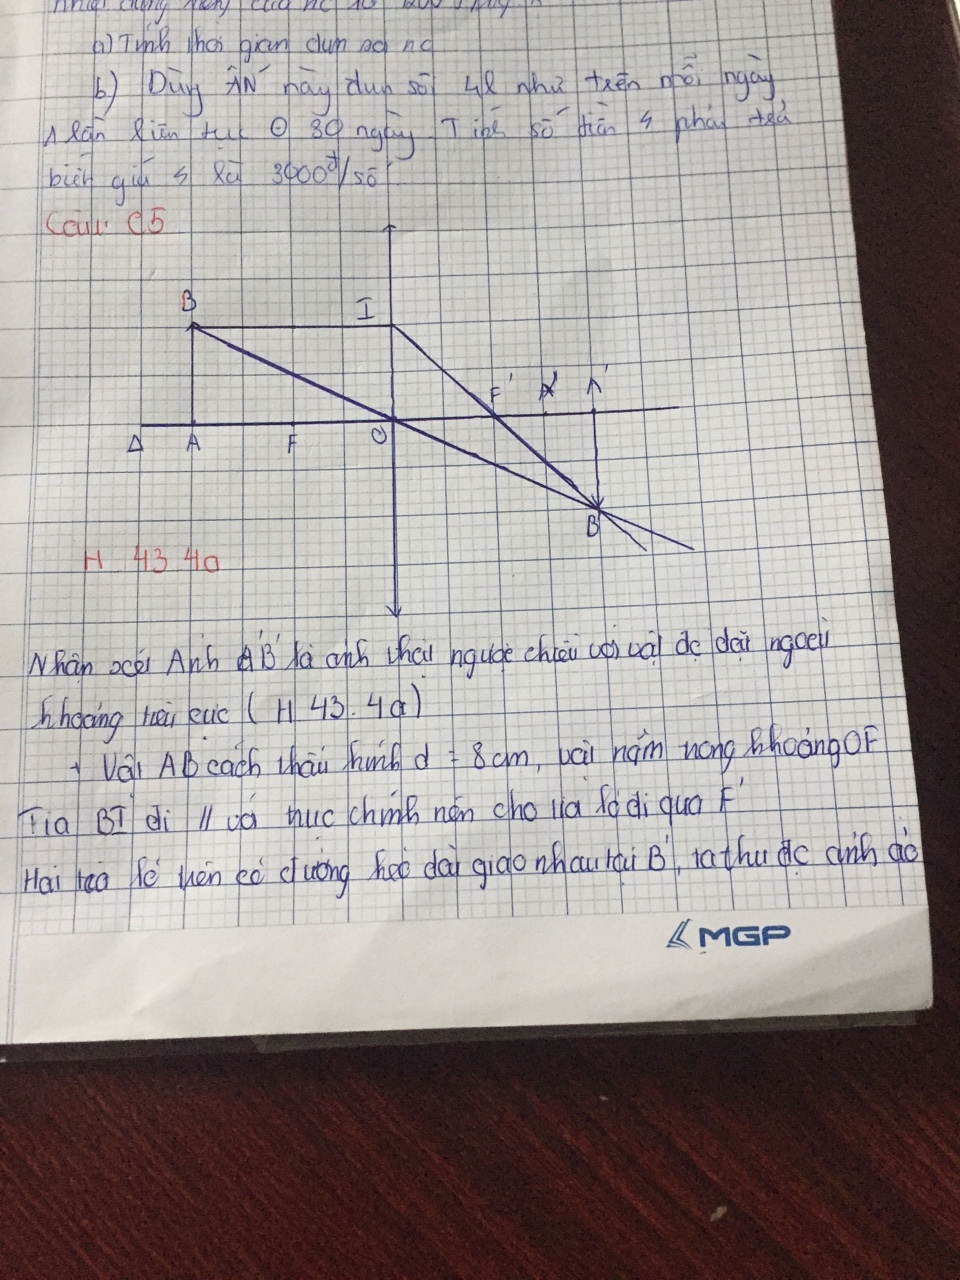 a) Tính thời gian đun sôi nc
b) Dùng ÂN này đun sôi 4l như trên mỗi ngày
1 lần liên tục 30 ngày. Tính số tiền phải trả
biết giá là 3000đ/số
Câu C5
B I
F' A' A'
Δ A F O
B'
H 43 4a
Nhận xét Ảnh A'B' là ảnh thật ngược chiều với vật đc đặt ngoài
khoảng tiêu cực (H 43.4a)
+ Vật AB cách thấu kính d = 8cm, vật nằm trong khoảng OF
Tia BI đi // vó trục chính nên cho tia ló đi qua F'
Hai tia ló trên có đường kéo dài giao nhau tại B', ta thu đc ảnh ảo
MGP